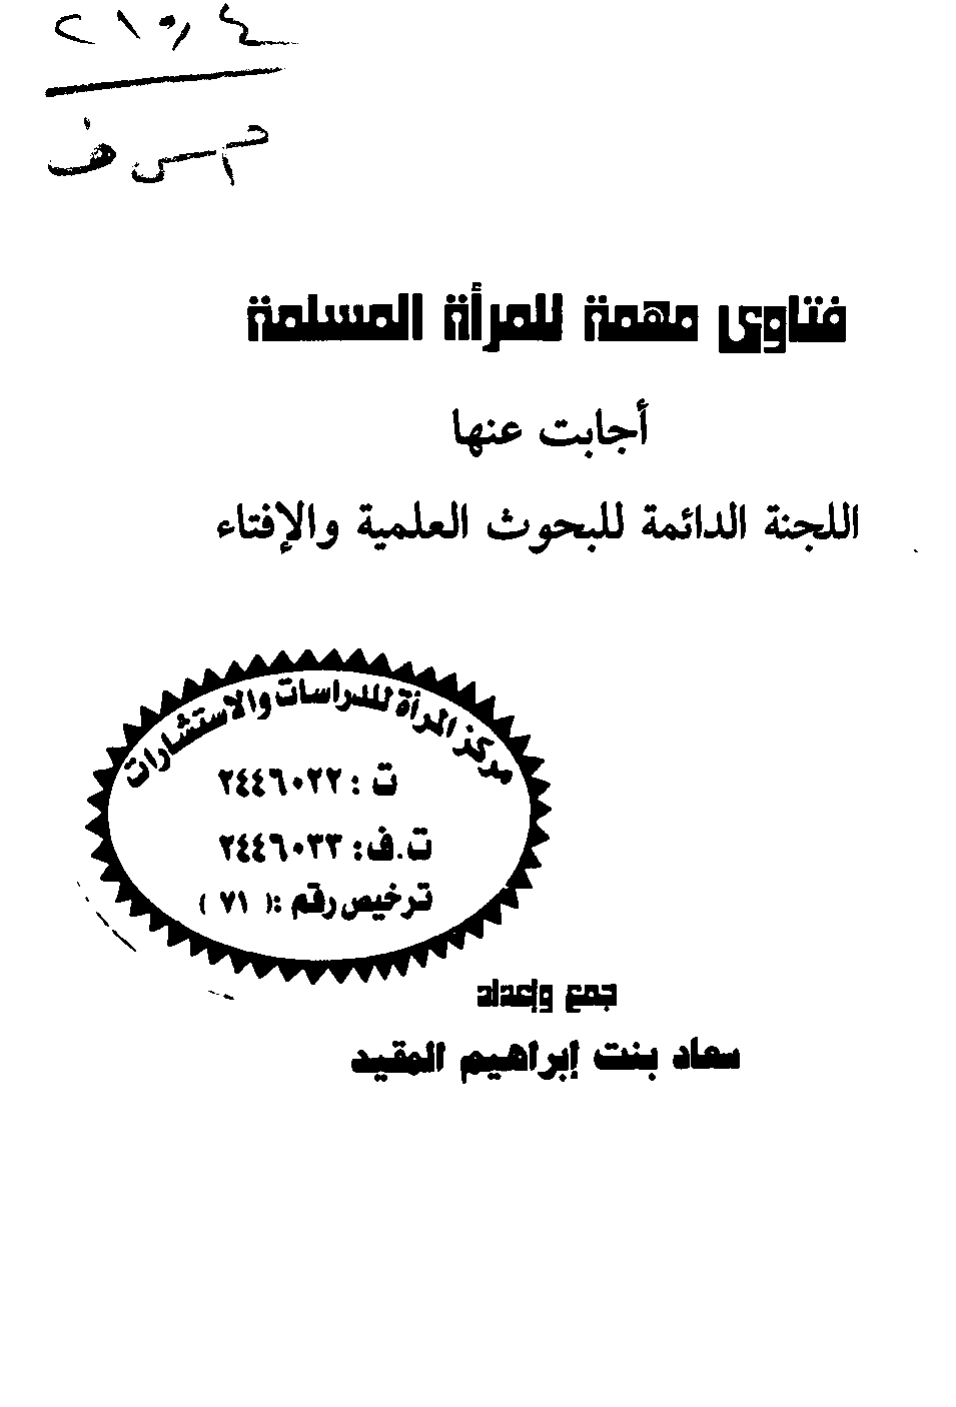 ٢١٥,٤
م س ف
فتاوى مهمة للمرأة المسلمة
أجابت عنها
اللجنة الدائمة للبحوث العلمية والإفتاء
مركز المرأة للدراسات والاستشارات
ت : ٢٤٤٦٠٢٢
ت.ف: ٢٤٤٦٠٣٣
ترخيص رقم :( ٧١ )
جمع وإعداد
سعاد بنت إبراهيم المقيد